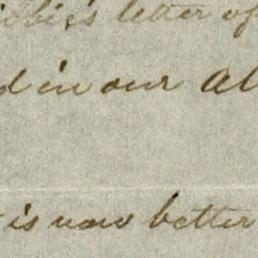 letter of
in our al
is now better